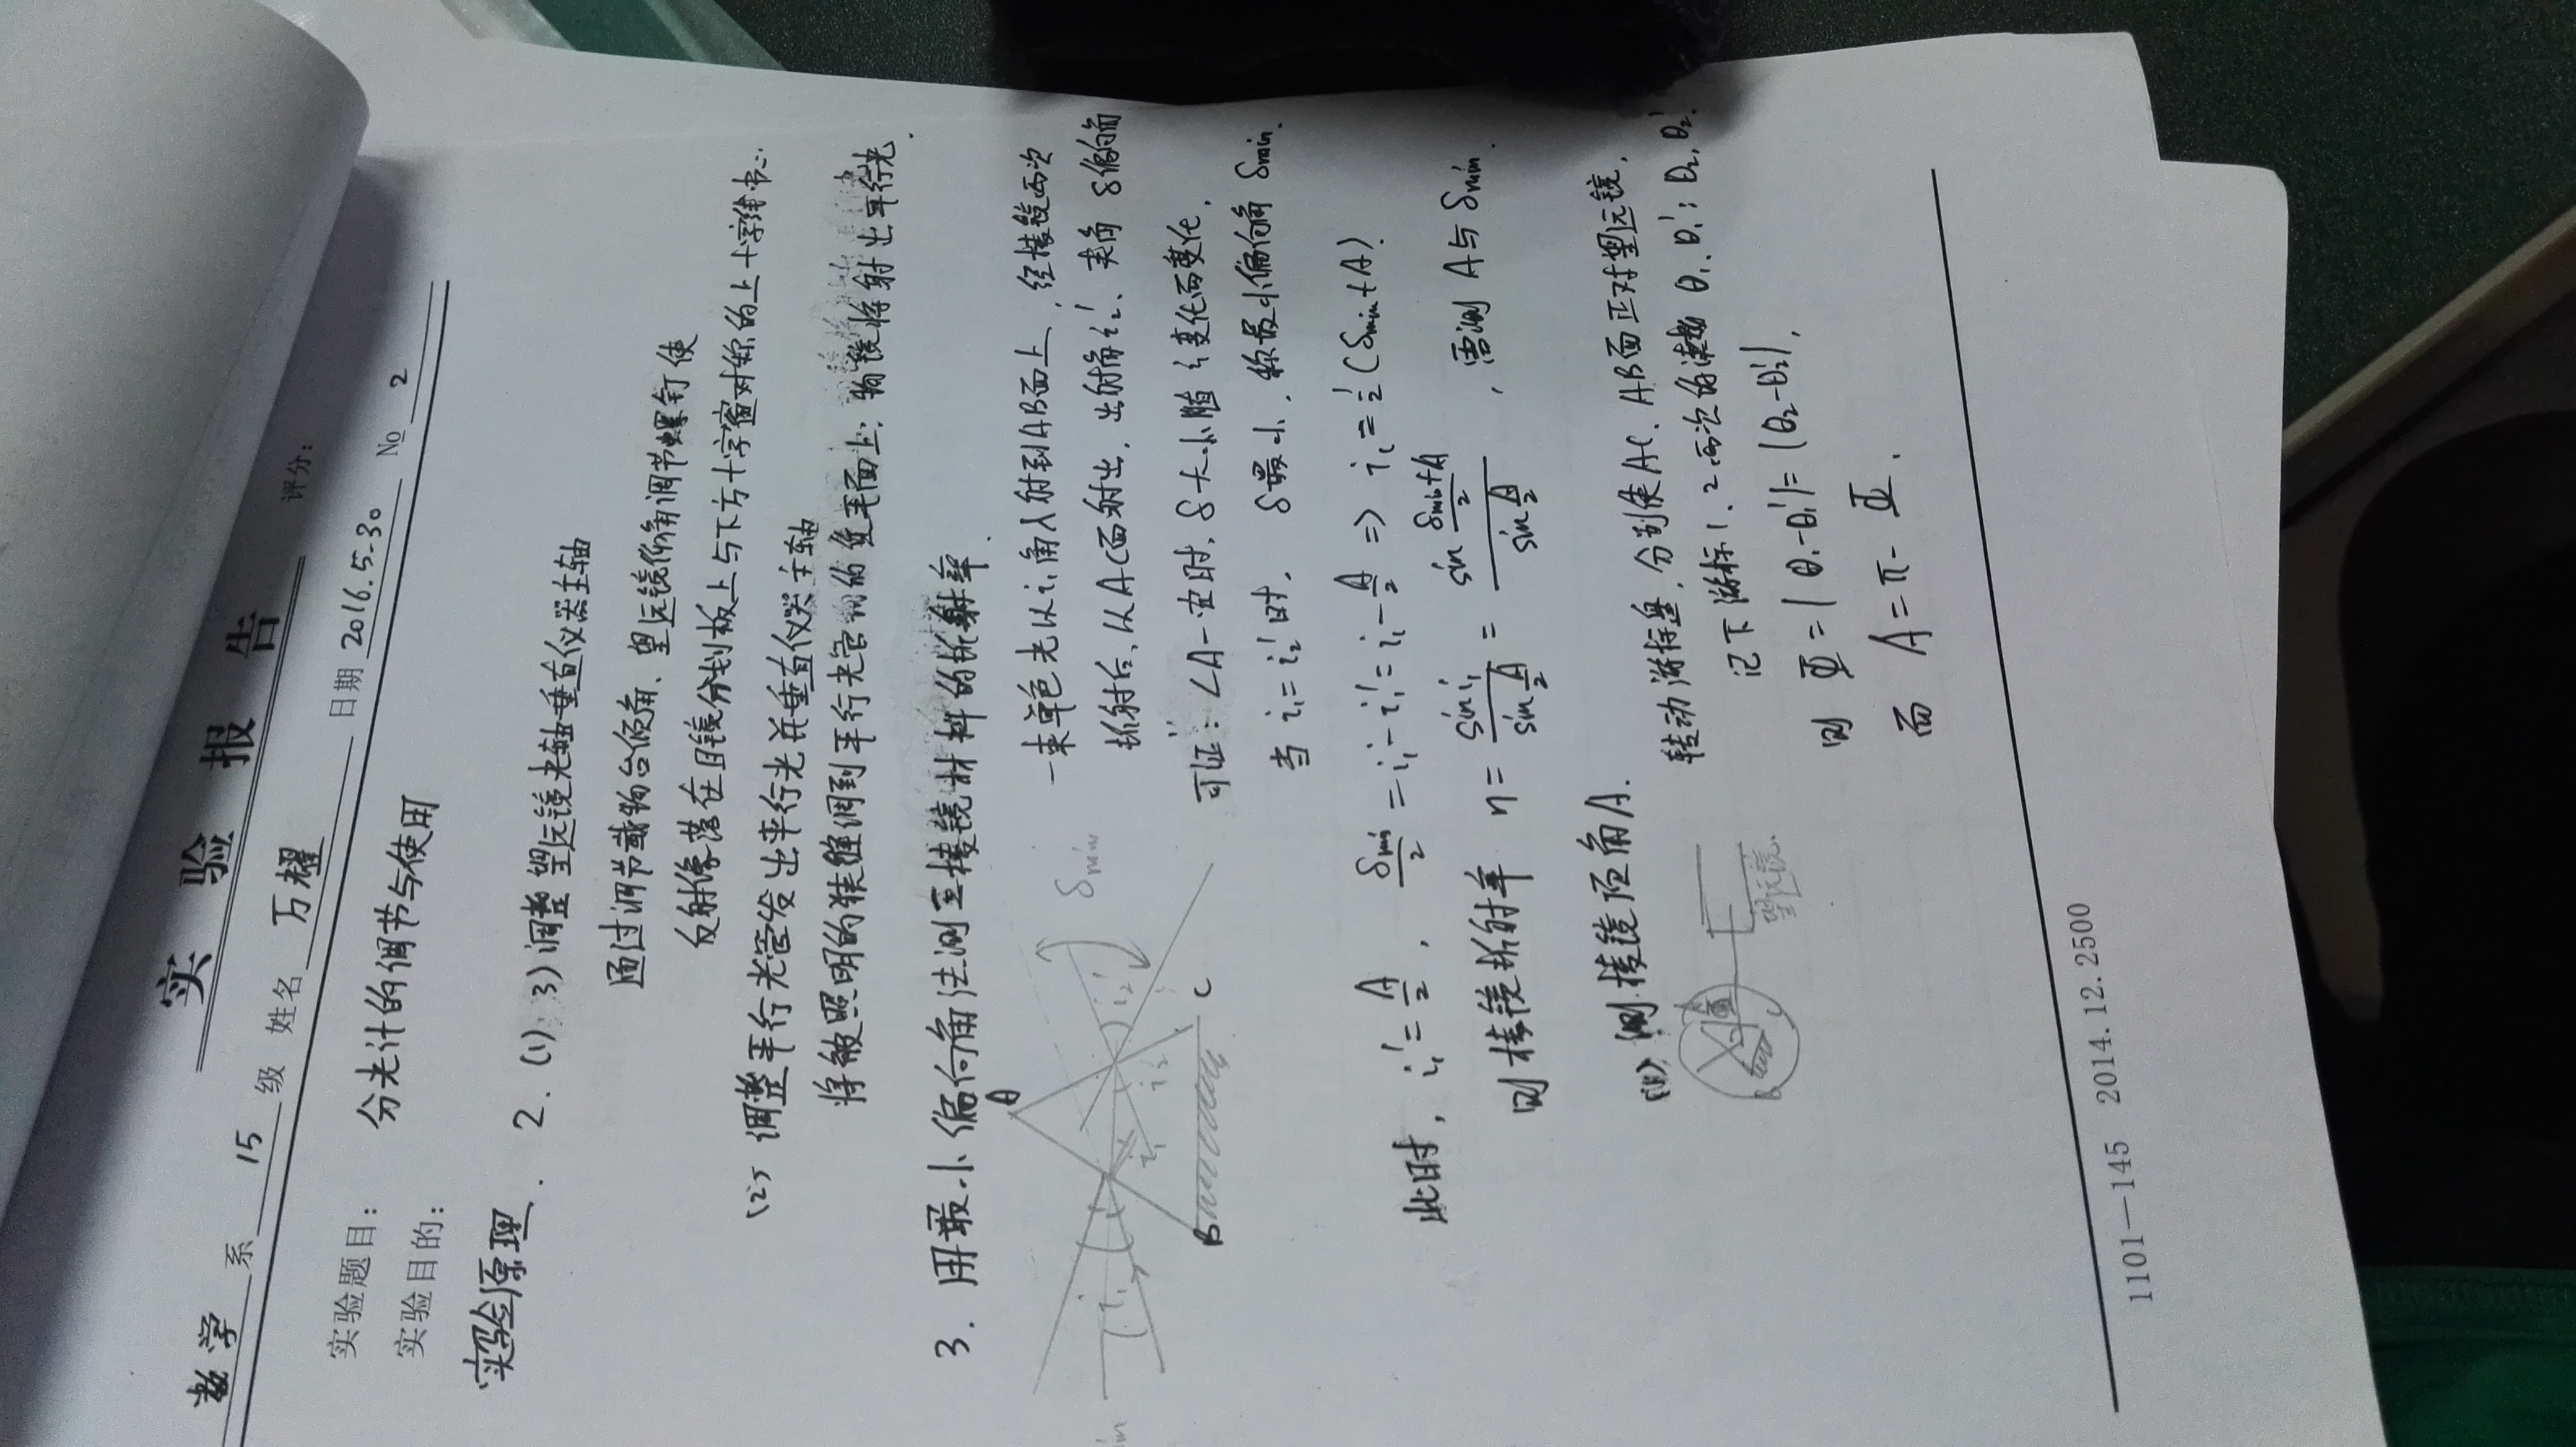 实 验 报 告
评分:
数学 系 15 级 姓名 万耀 日期 2016.5.30 No 2
实验题目: 分光计的调节与使用
实验目的:
实验原理. 2. (1) 3) 调整望远镜光轴垂直仪器主轴
通过调节载物台倾角、望远镜俯角调节螺钉使
反射像落在目镜分划板上与下方十字窗对称的上十字线中心.
(2) 调整平行光管发出平行光并垂直仪器主轴
将被照明的狭缝调到平行光管物镜焦平面上, 物镜将射出平行光.
3. 用最小偏向角法测三棱镜材料的折射率.
一束单色光以i₁角入射到AB面上, 经棱镜两次
折射后, 从AC面射出, 出射角i₂′. 夹角 δ偏向角
可证: ∠A一定时, δ大小随i₁变化而变化.
当 i₁=i₂′时, δ最小, 称最小偏向角 δmin.
A
B
C
δmin
i₁
i₂′
i₁′
i₂
此时, i₁′=A/2, δmin/2 = i₁-i₁′ = i₁-A/2 => i₁=1/2(δmin+A).
则棱镜折射率 n = sin i₁/sin A/2 = sin (δmin+A)/2 / sin A/2, 需测 A与δmin.
测棱镜顶角A.
转动游标盘, 分别使AC、AB面正对望远镜,
记下游标1、2两次的读数 θ₁、θ₁′; θ₂、θ₂′
则 Φ=|θ₁-θ₁′|=|θ₂-θ₂′|,
而 A=π-Φ.
望远镜
1101—145 2014.12.2500